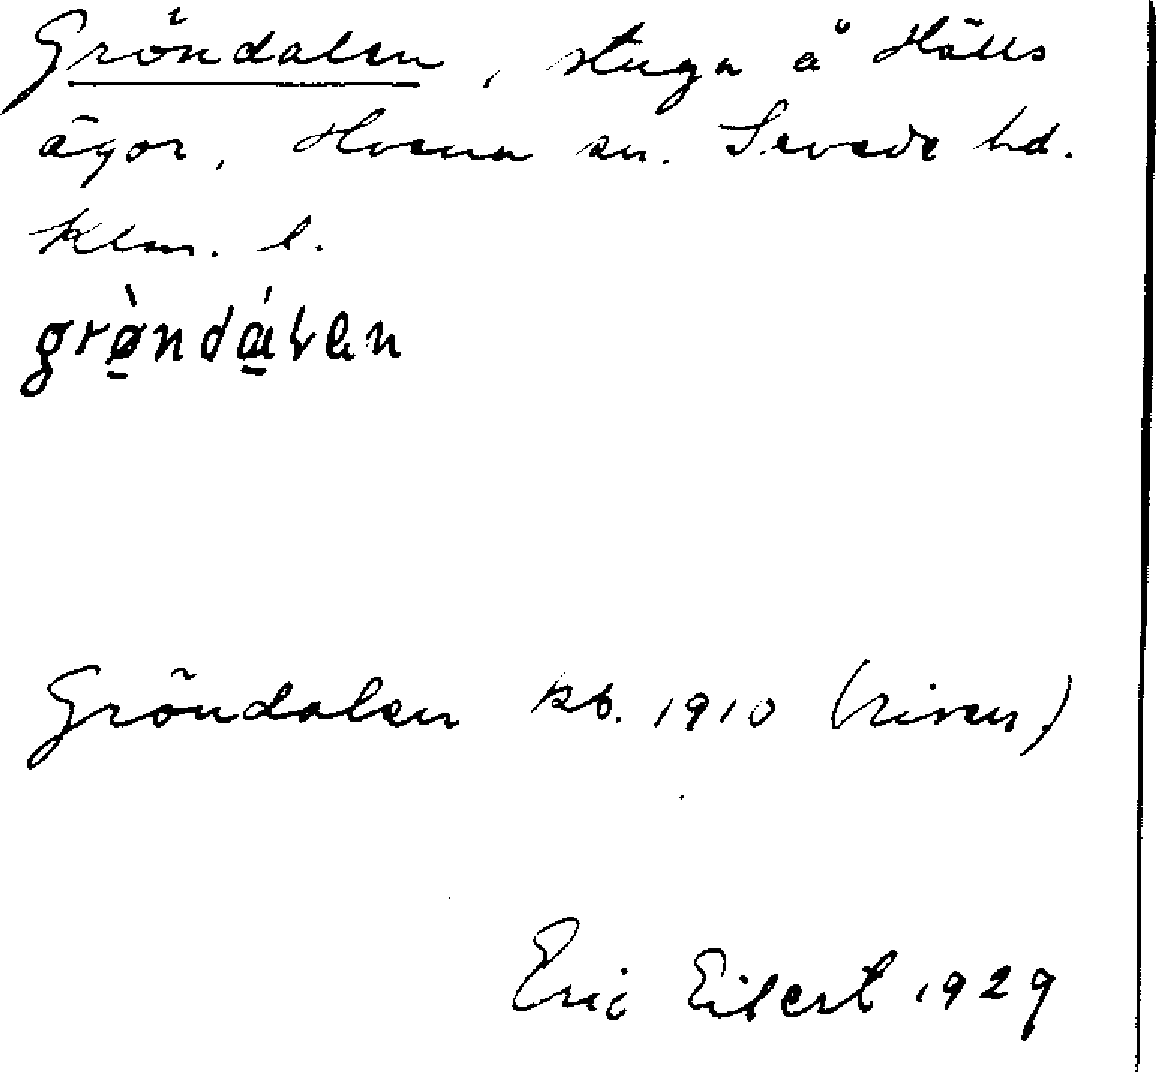 Gröndalen, stuga å Hälls
ägor, Hvena sn. Sevede hd.
Klm. l.
grø̀ndálen
Gröndalen kb. 1910 (riven)
Eric Eilert 1929